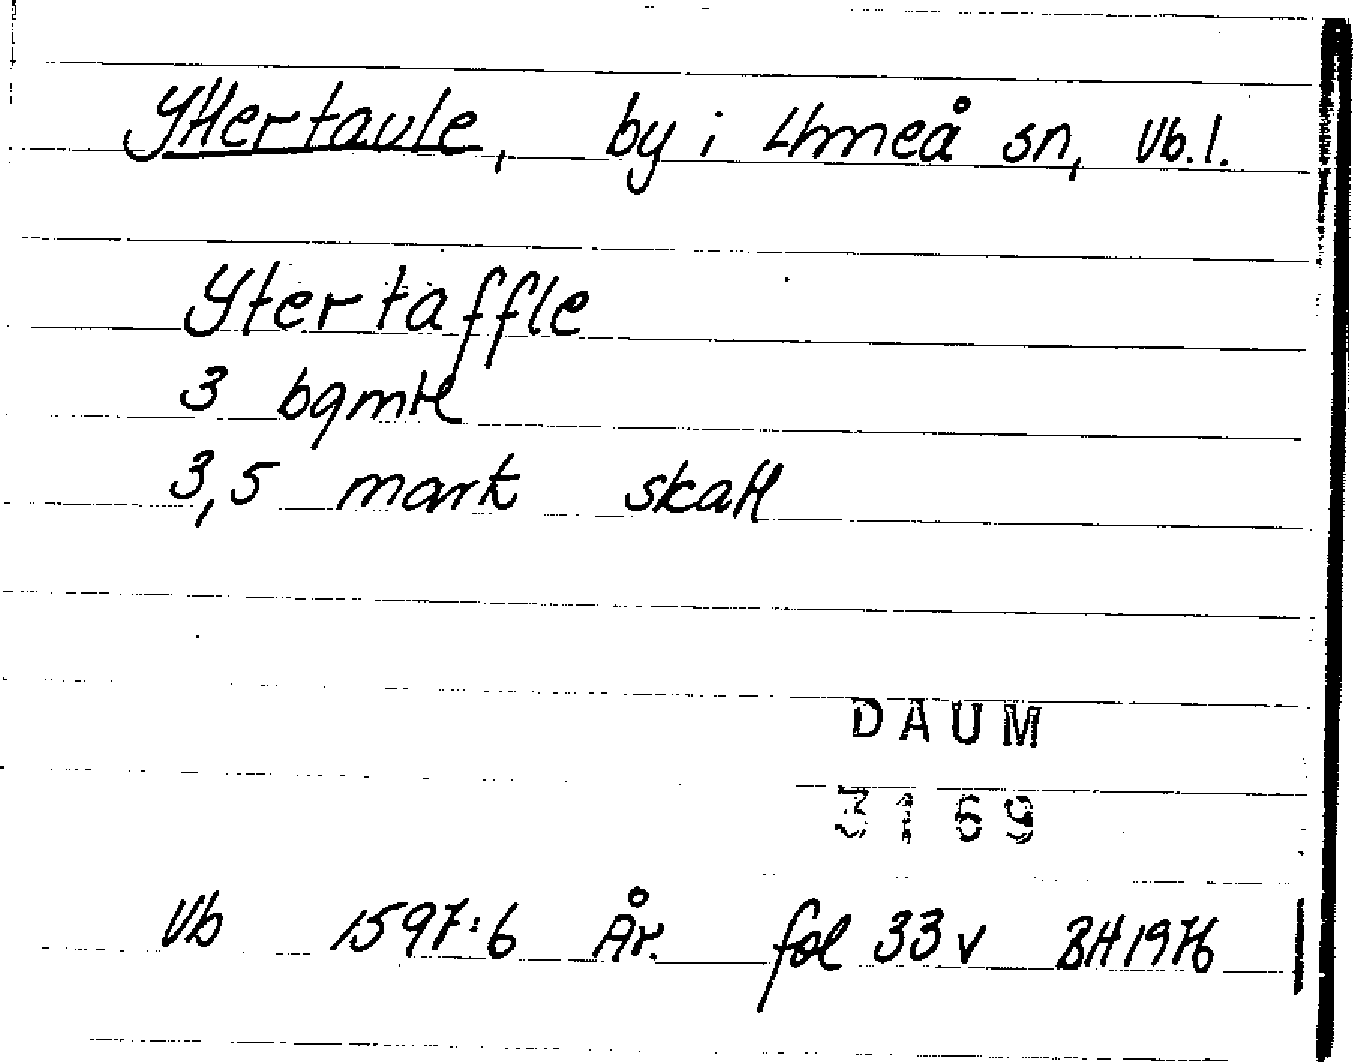 Yttertavle, by i Umeå sn, Vb.l.
Ytertaffle
3 bqmtl
3,5 mark skatt
DAUM
3169
Vb 1597:6 År. fol 33 v BH 1976